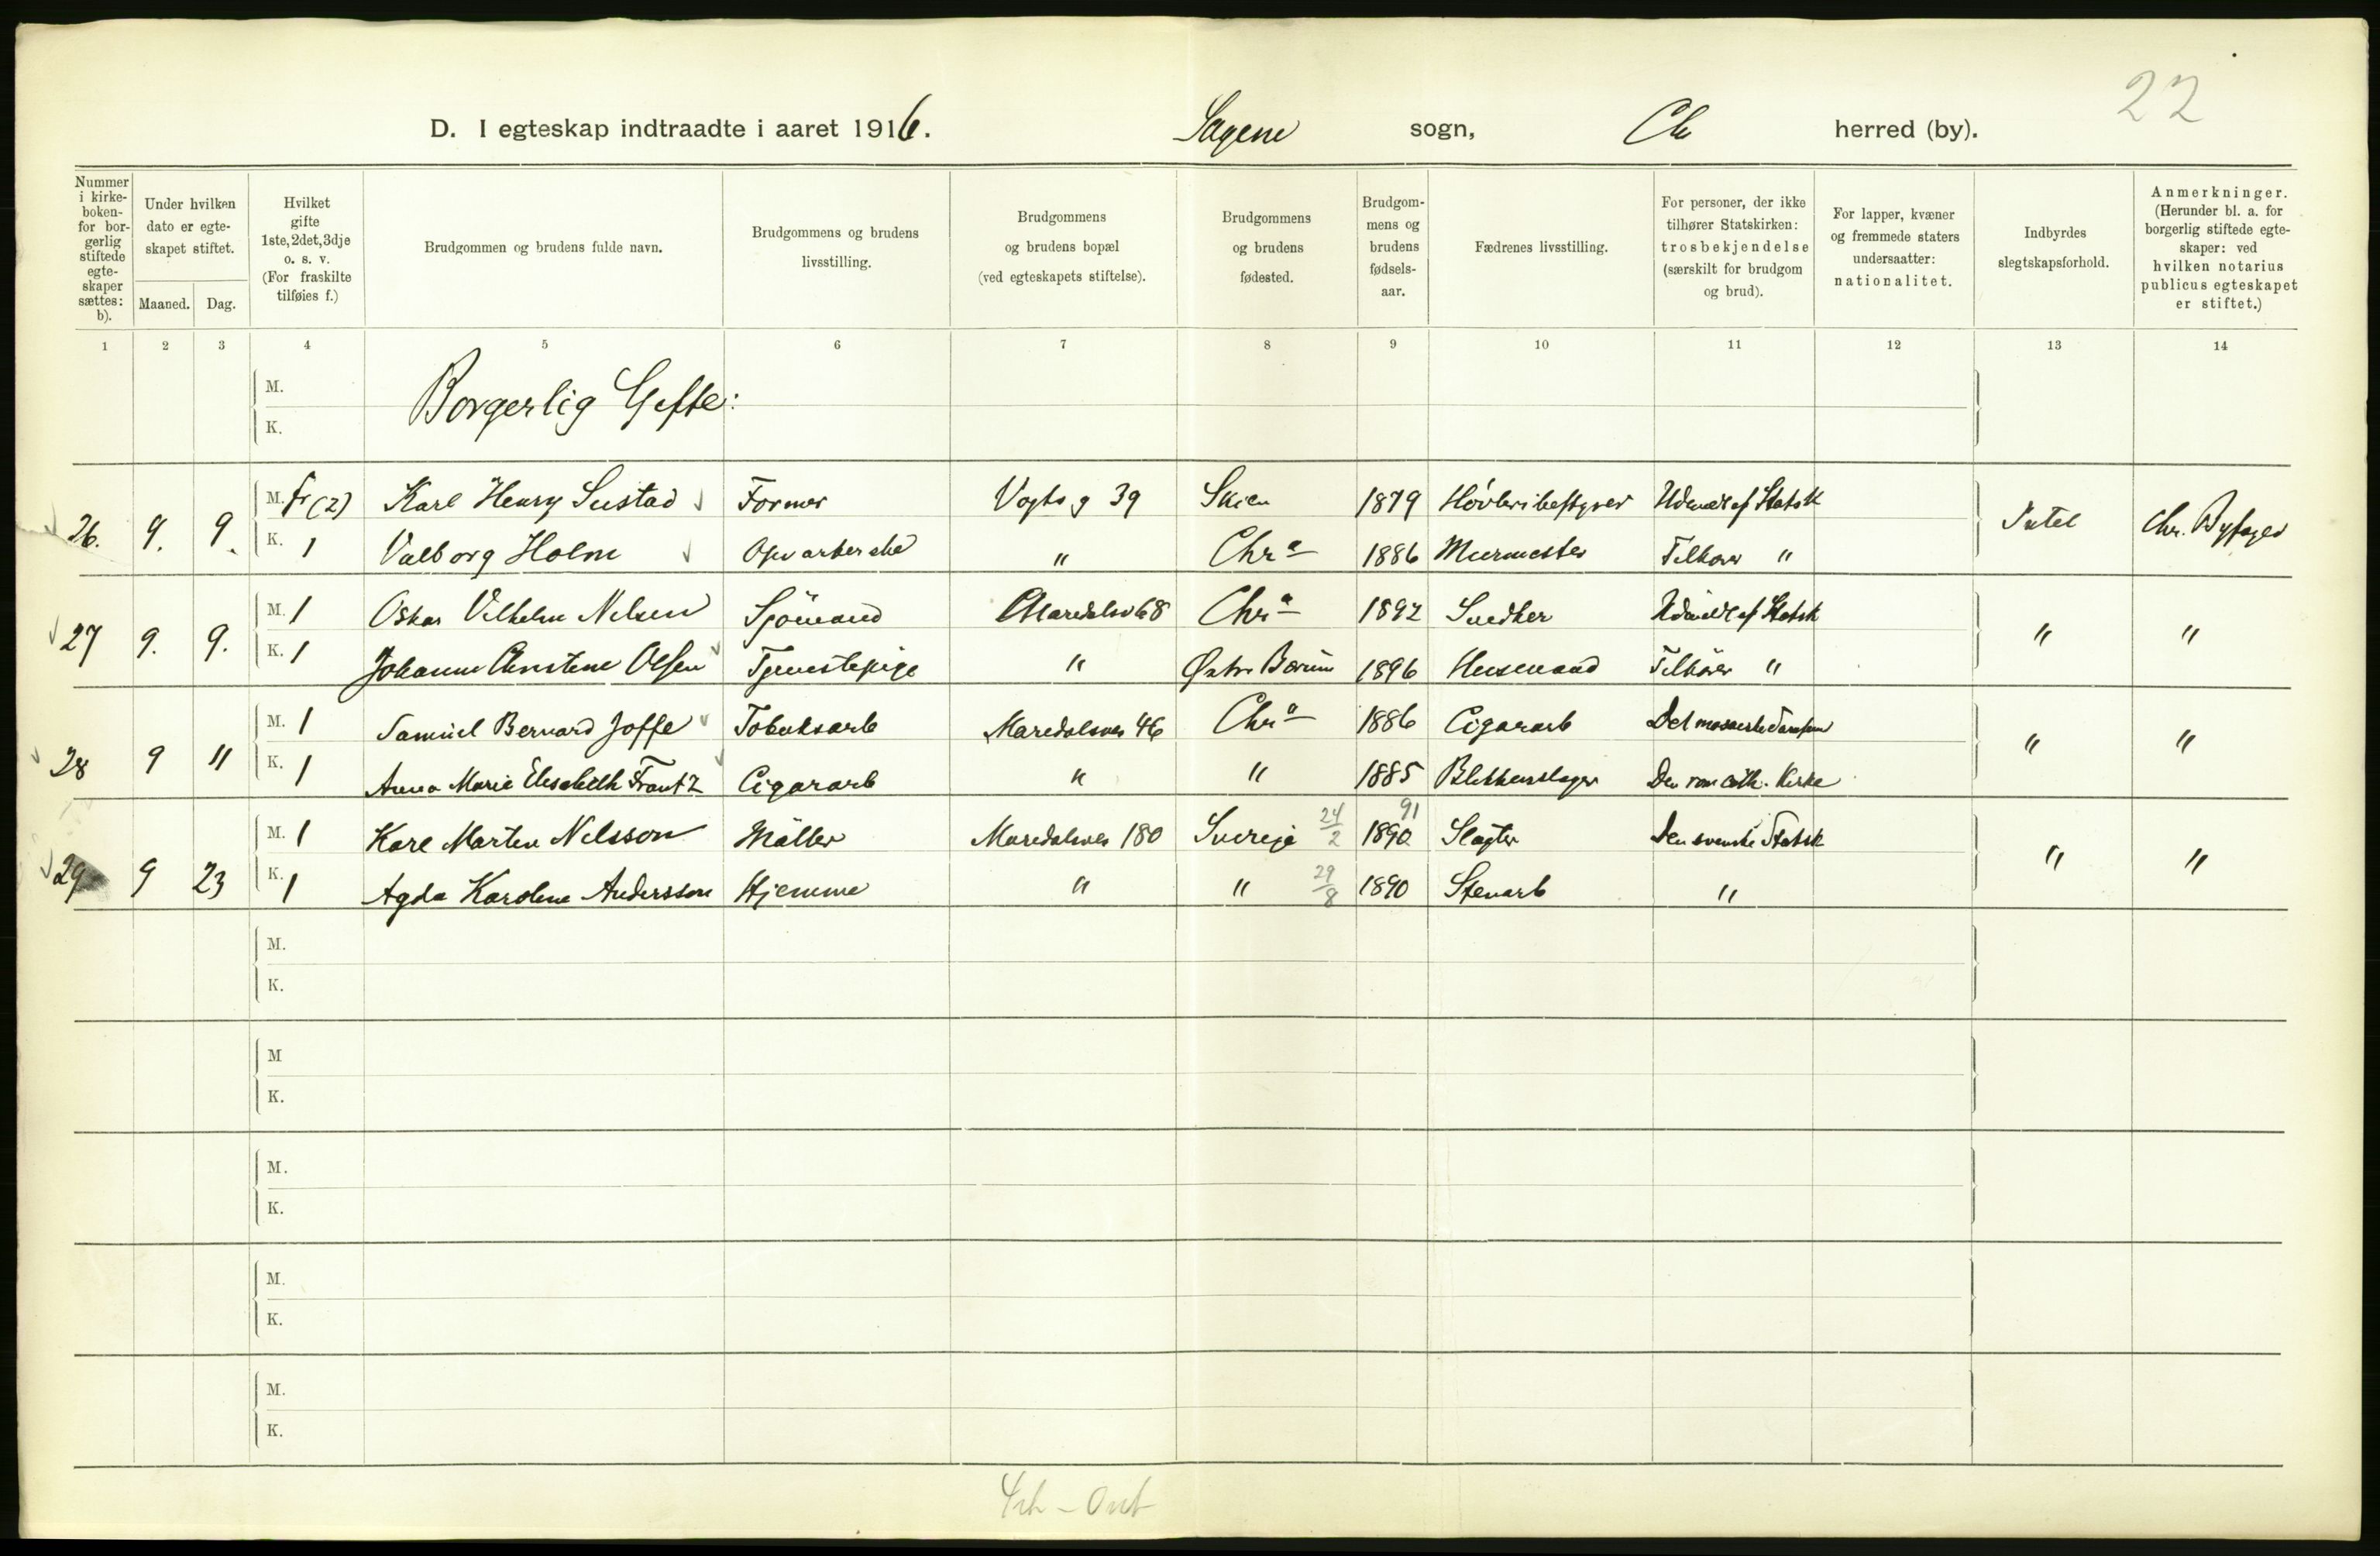 22
D. I egteskap indtraadte i aaret 1916. Sagene sogn, Ch herred (by).
Nummer i kirke-boken- for bor-gerlig stiftede egte-skaper sættes: b).
Under hvilken dato er egte-skapet stiftet.
Maaned. Dag.
Hvilket gifte 1ste, 2det, 3dje o. s. v. (For fraskilte tilføies f.)
Brudgommen og brudens fulde navn.
Brudgommens og brudens livsstilling.
Brudgommens og brudens bopæl (ved egteskapets stiftelse).
Brudgommens og brudens fødested.
Brudgom-mens og brudens fødsels-aar.
Fædrenes livsstilling.
For personer, der ikke tilhører Statskirken: trosbekjendelse (særskilt for brudgom og brud).
For lapper, kvæner og fremmede staters undersaatter: nationalitet.
Indbyrdes slegtskapsforhold.
Anmerkninger. (Herunder bl. a. for borgerlig stiftede egte-skaper: ved hvilken notarius publicus egteskapet er stiftet.)
1 2 3 4 5 6 7 8 9 10 11 12 13 14
M.
K.
Borgerlig Gifte:
26. 9. 9. M. fr (2) Karl Henry Sustad Former Vogts g 39 Skien 1879 Høvleribestyrer Udmeldt af Statsk Intet Chr. Byfoged
K. 1 Valborg Holm Opvarterske " Chra 1886 Murmester Tilhører "
27 9. 9. M. 1 Oskar Vilhelm Nilsen Sjömand Maredalsv 68 Chra 1892 Snedker Udmeldt af Statsk " "
K. 1 Johanne Christine Olsen Tjenestepige " Østre Bærum 1896 Husmand Tilhører "
28 9 11 M. 1 Samuel Bernard Joffe Tobaksarb Maredalsvei 46 Chra 1886 Cigararb Det mosaiske Samfun " "
K. 1 Anna Marie Elisabeth Frantz Cigararb " " 1885 Blikkenslager Den rom cath. Kirke
29 9 23 M. 1 Karl Marten Nilsson Möller Maredalsvei 180 Sverige 24/2 1890 91 Slagter Den svenske Statsk " "
K. 1 Agda Karolina Andersson Hjemme " " 29/8 1890 Stenarb "
M.
K.
M
K.
M.
K.
M.
K.
M.
K.